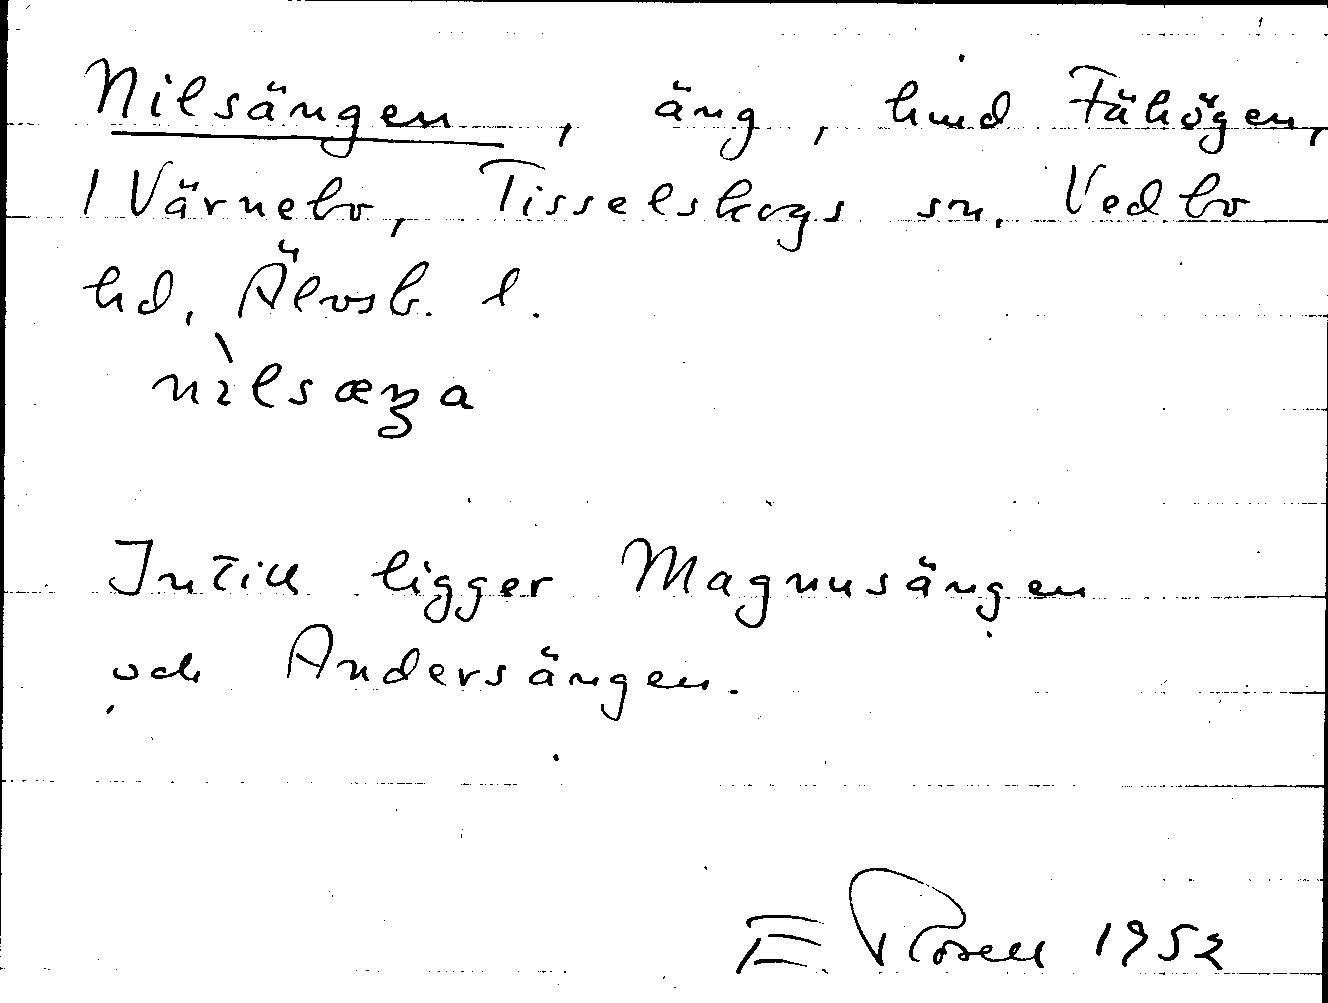 Nilsängen, äng, hmd Fähögen,
1 Värnebo, Tisselskogs sn. Vedbo
hd, Älvsb. l.
nìlsæŋa
Intill ligger Magnusängen
och Andersängen.
E. Rosell 1952